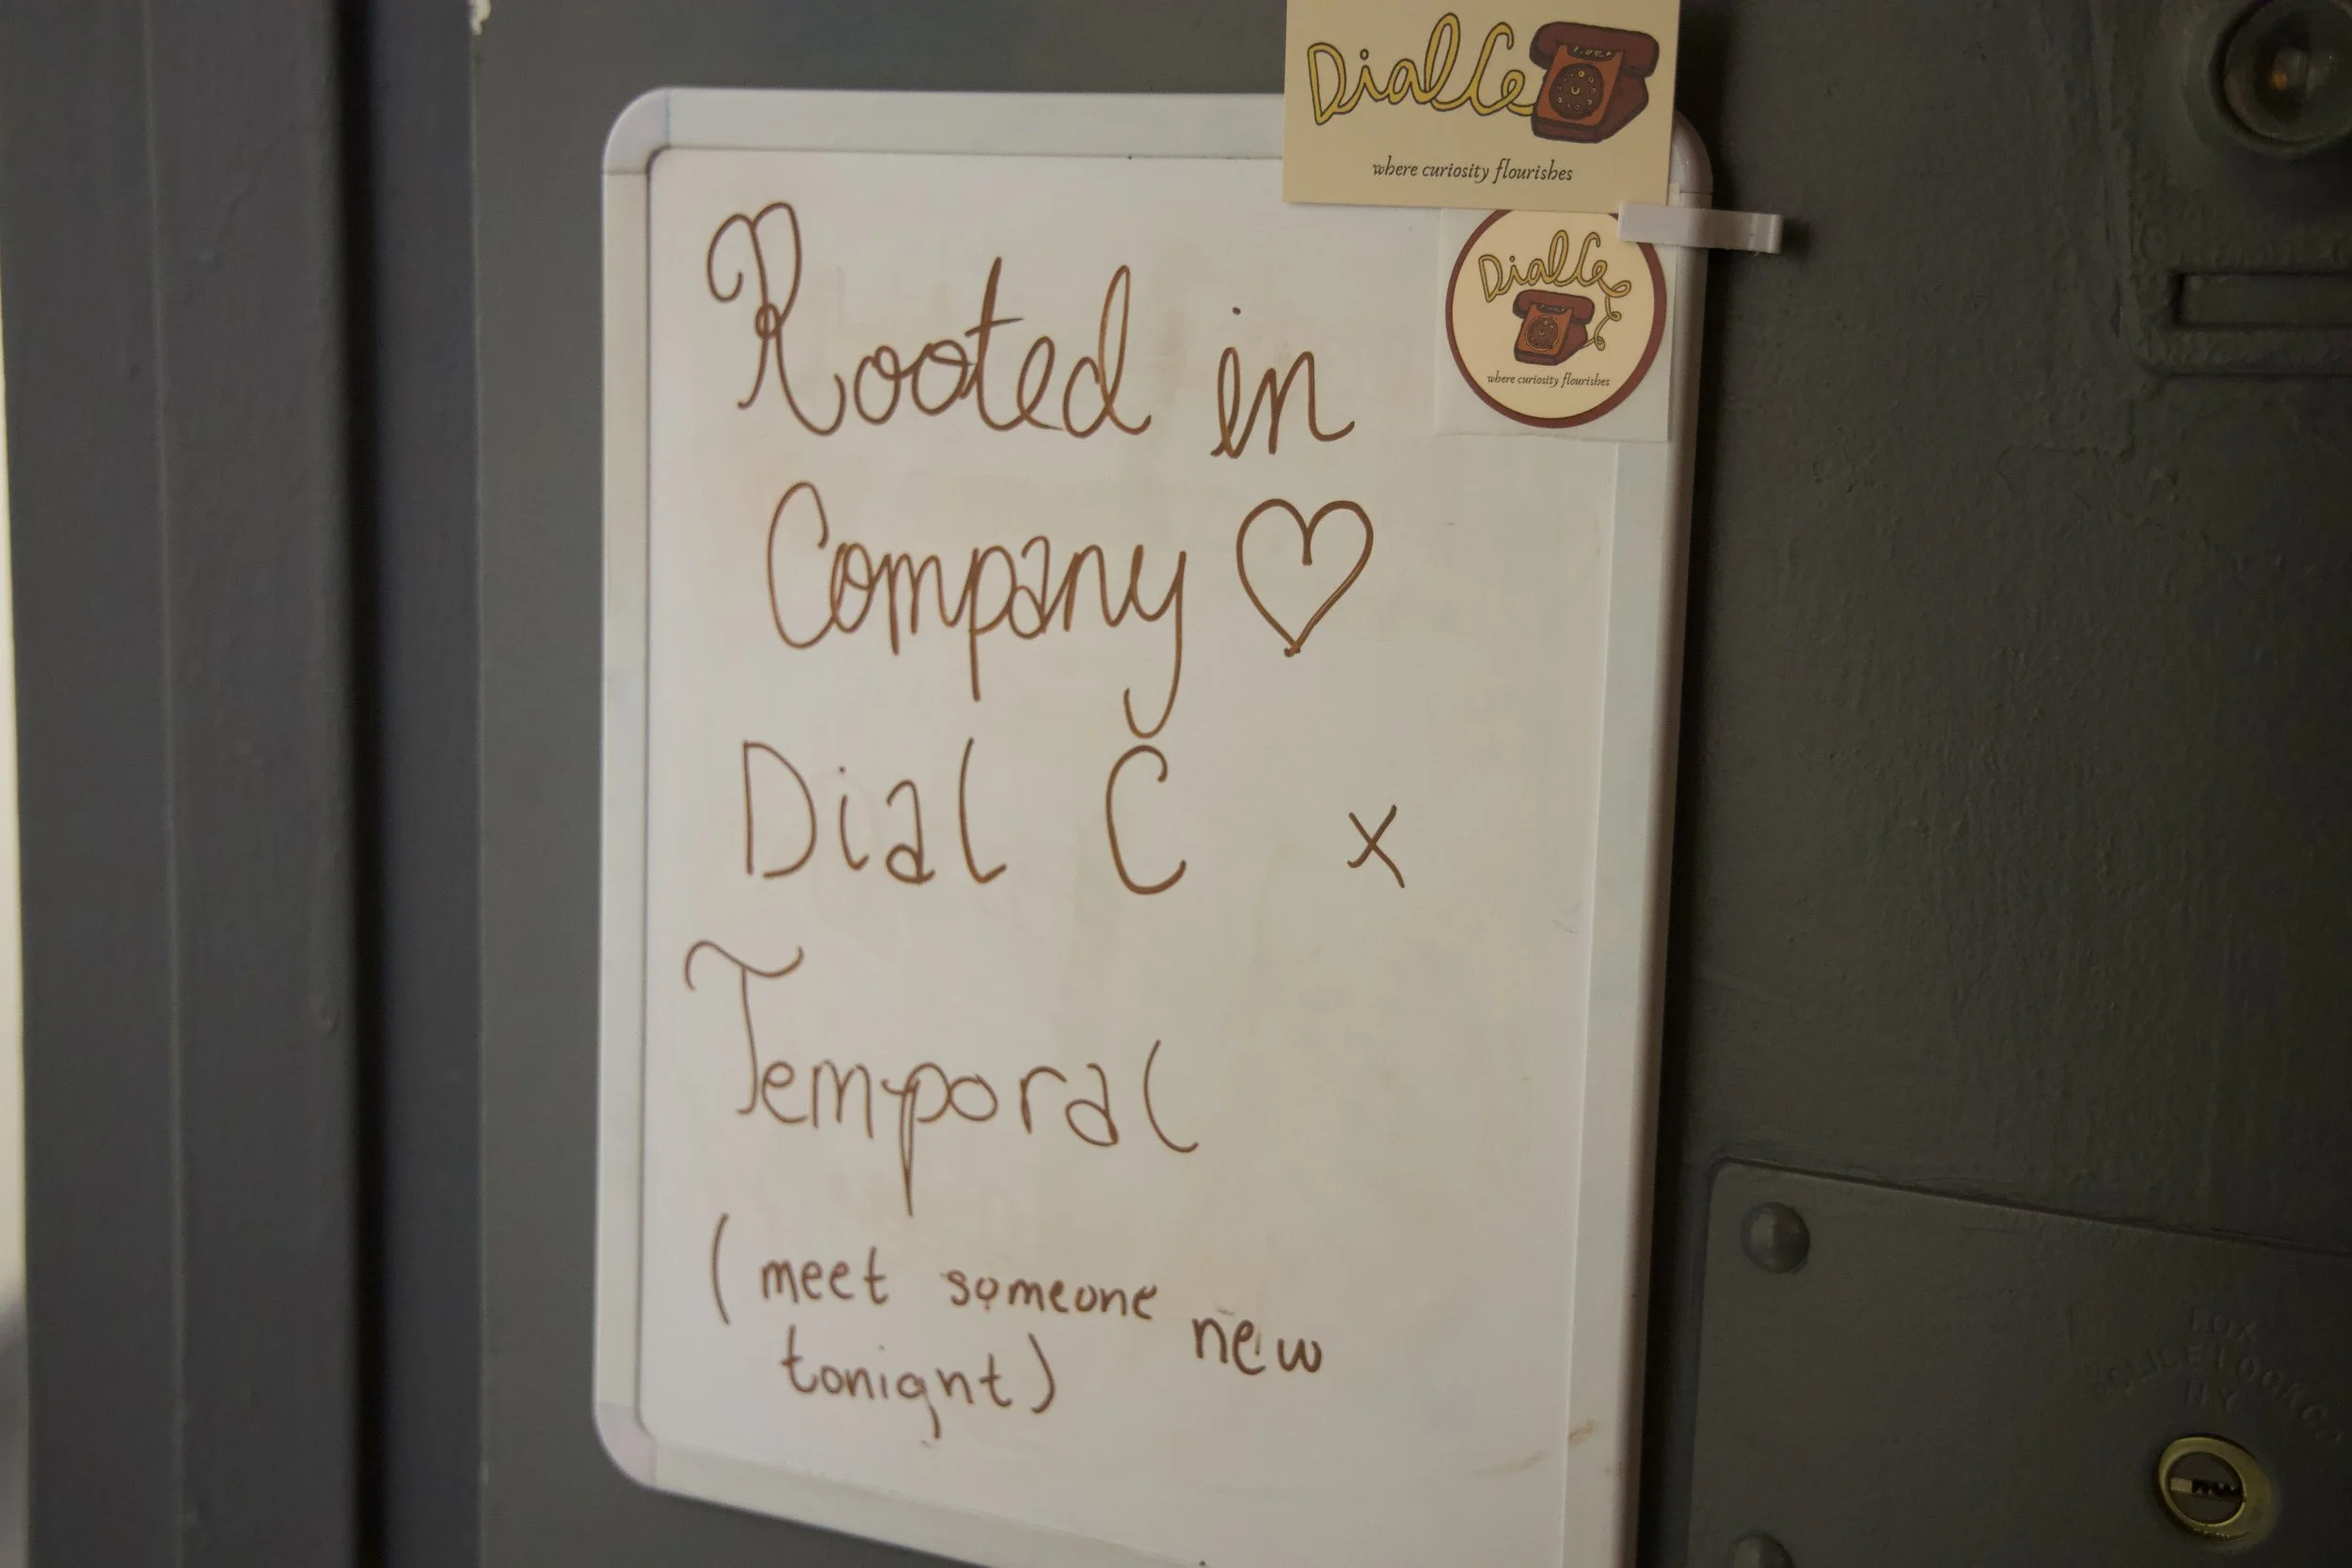 DialC
where curiosity flourishes
DialC
where curiosity flourishes
Rooted in
Company ♡
Dial C x
Temporal
(meet someone new
tonight)
NY